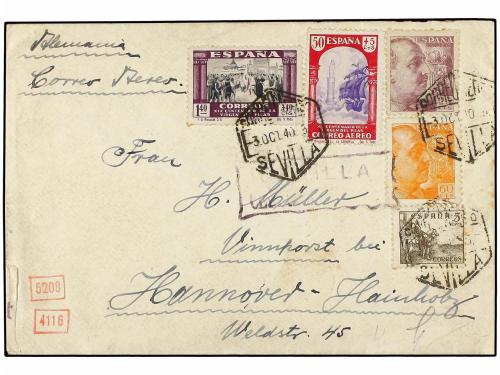 Alemania
Correo Aereo
ESPAÑA
1'40
CORREOS
XIX CENTENARIO DE LA
VIRGEN DEL PILAR
50 ESPAÑA +5
CENTENARIO DE LA
VIRGEN DEL PILAR
CORREO AEREO
3 OCT. 40
SEVILLA
3 OCT. 40
SEVILLA
60
ESPAÑA 5
CORREOS
SEVILLA
Frau
H. Müller
Vinnhorst bei
Hannover-Hainholz
Weldstr. 45
5209
4116